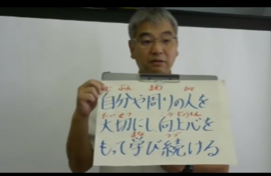 自分や周りの人を
大切にし向上心を
もって学び続ける